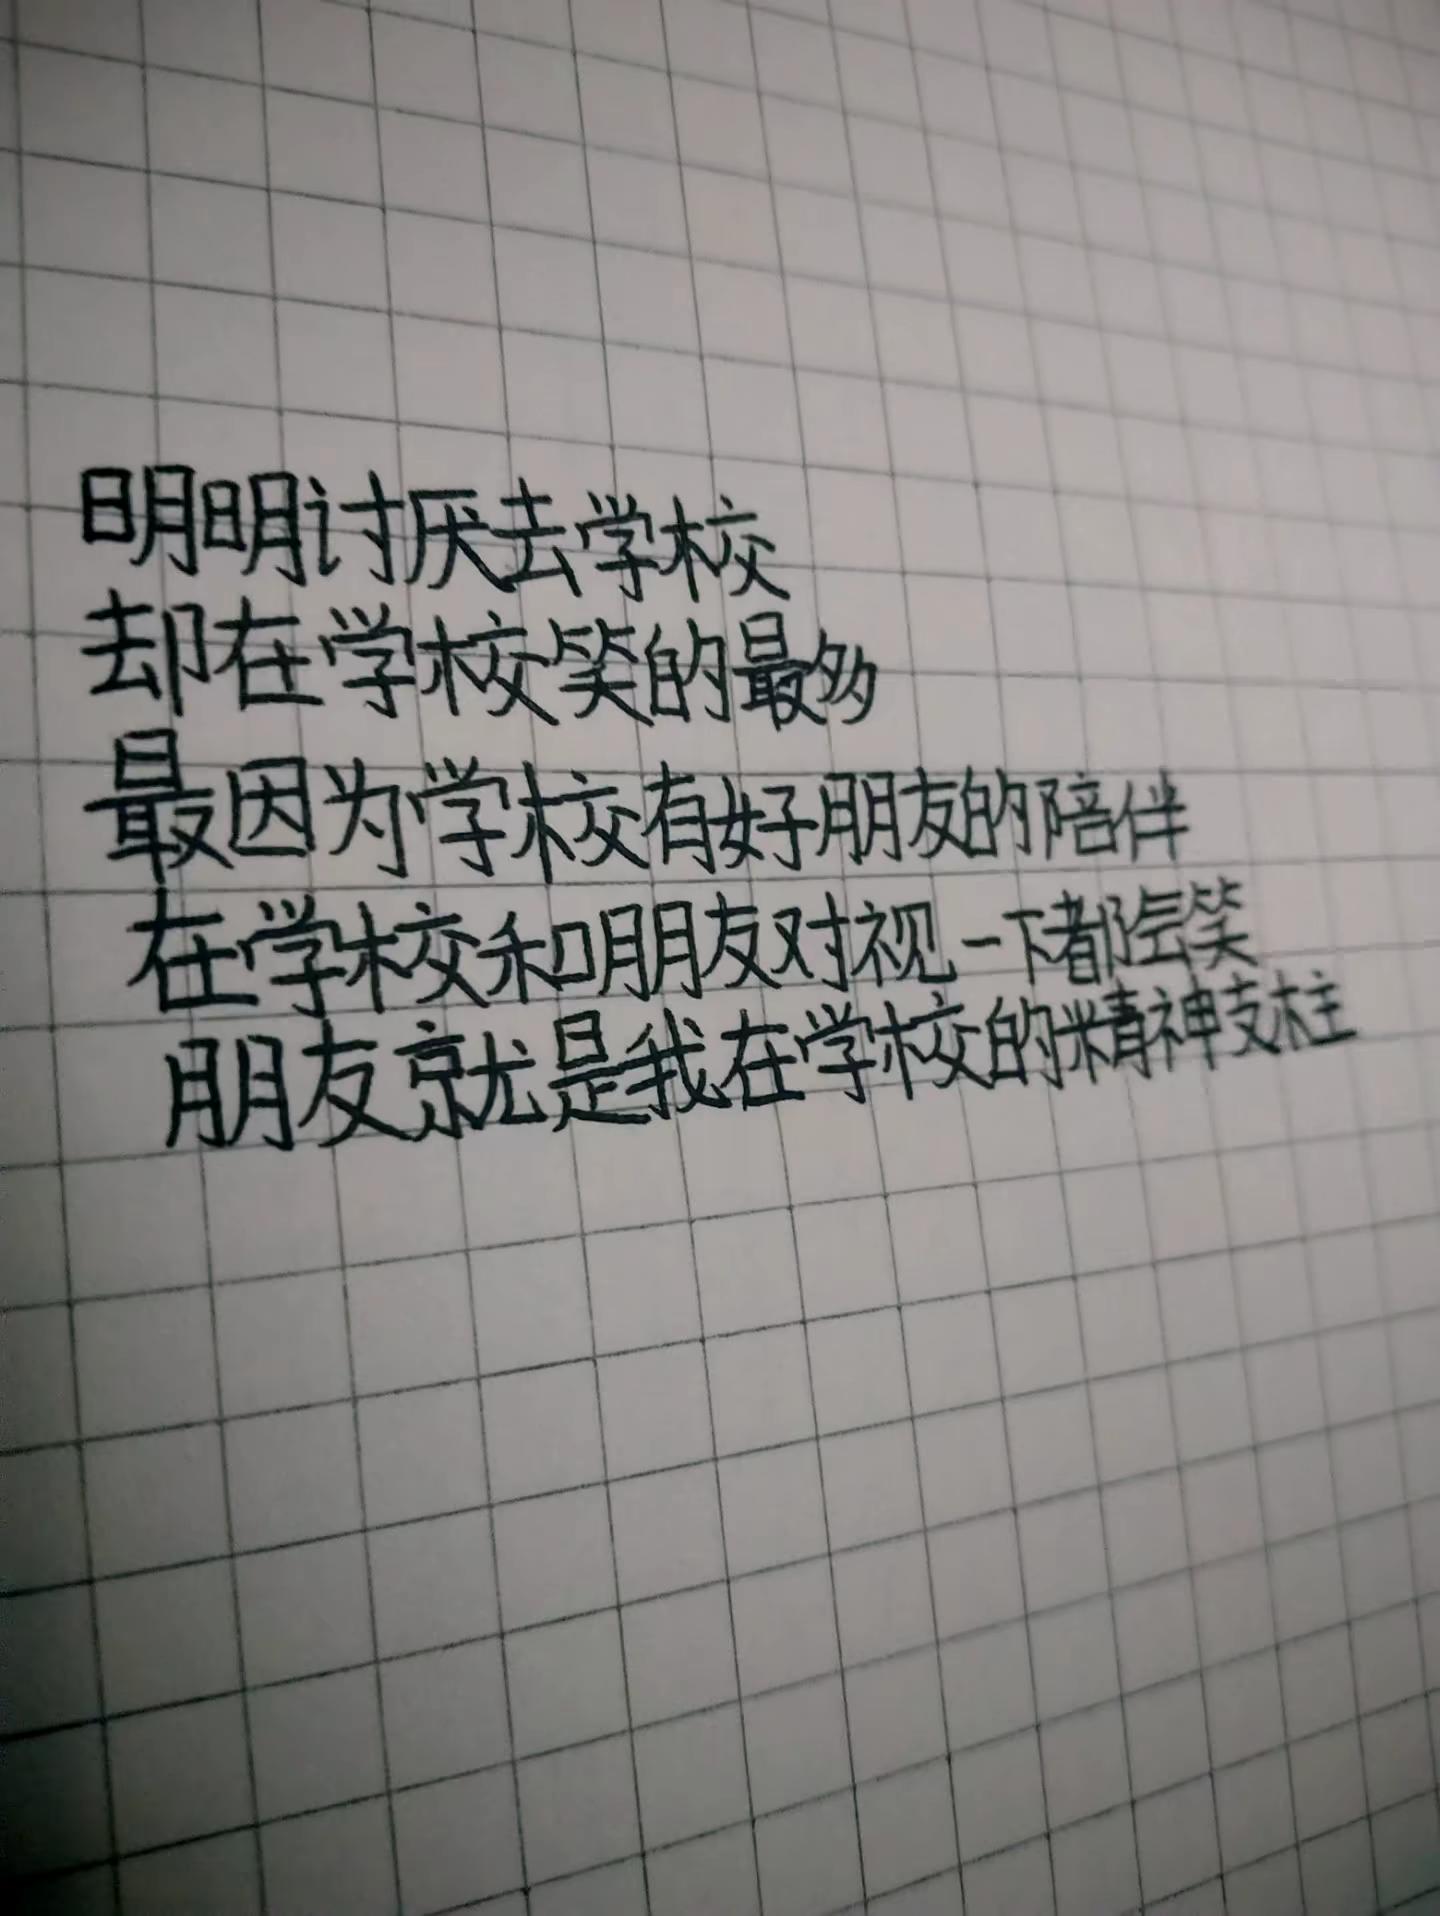 明明讨厌去学校
却在学校笑的最多
最因为学校有好朋友的陪伴
在学校和朋友对视一下都会笑
朋友就是我在学校的精神支柱